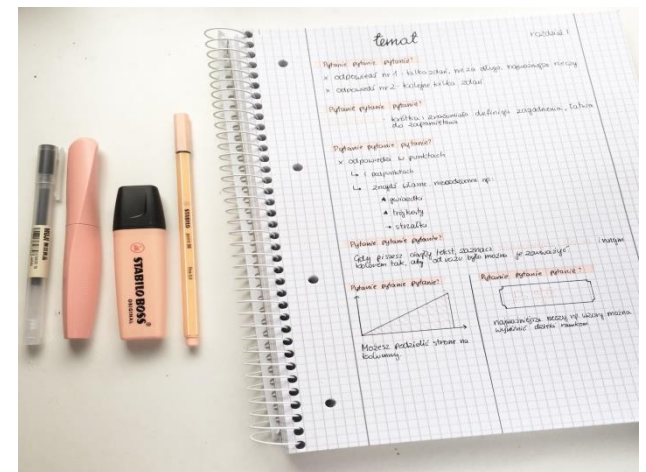 temat
rozdział 1
Pytanie pytanie pytanie?
x odpowiedź nr 1 - kilka zdań, nie za długa, najważniejsze rzeczy
x odpowiedź nr 2 - kolejne kilka zdań
Pytanie pytanie pytanie?
- krótka i zrozumiała definicja zagadnienia, łatwa
do zapamiętania
Pytanie pytanie pytanie?
x odpowiedzi w punktach
↳ i podpunktach
↳ znajdź własne np:
gwiazdki
trójkąty
→ strzałki
Pytanie pytanie pytanie?
Gdy piszesz ciągły tekst, zaznacz innym
kolorem tak, aby od razu było można je zauważyć
Pytanie pytanie pytanie?
Możesz podzielić stronę na
kolumny.
Pytanie pytanie pytanie?
najważniejsze rzeczy np. wzory można
wyróżnić dzięki ramkom
MUJI
STABILO BOSS
ORIGINAL
STABILO